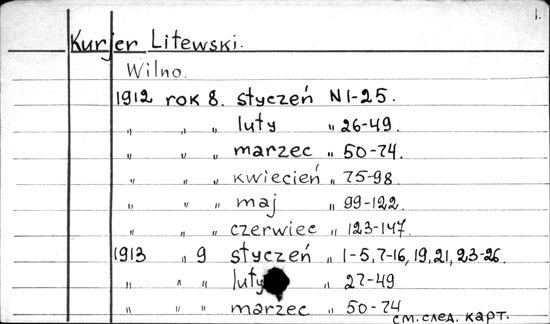 1.
Kurjer Litewski.
Wilno.
1912 rok 8. styczeń N 1-25.
" " " luty " 26-49.
" " " marzec " 50-74.
" " " kwiecień " 75-98.
" " " maj " 99-122.
" " " czerwiec " 123-147.
1913 " 9 styczeń " 1-5, 7-16, 19, 21, 23-26.
" " " luty " 27-49
" " " marzec " 50-74
см. след. карт.